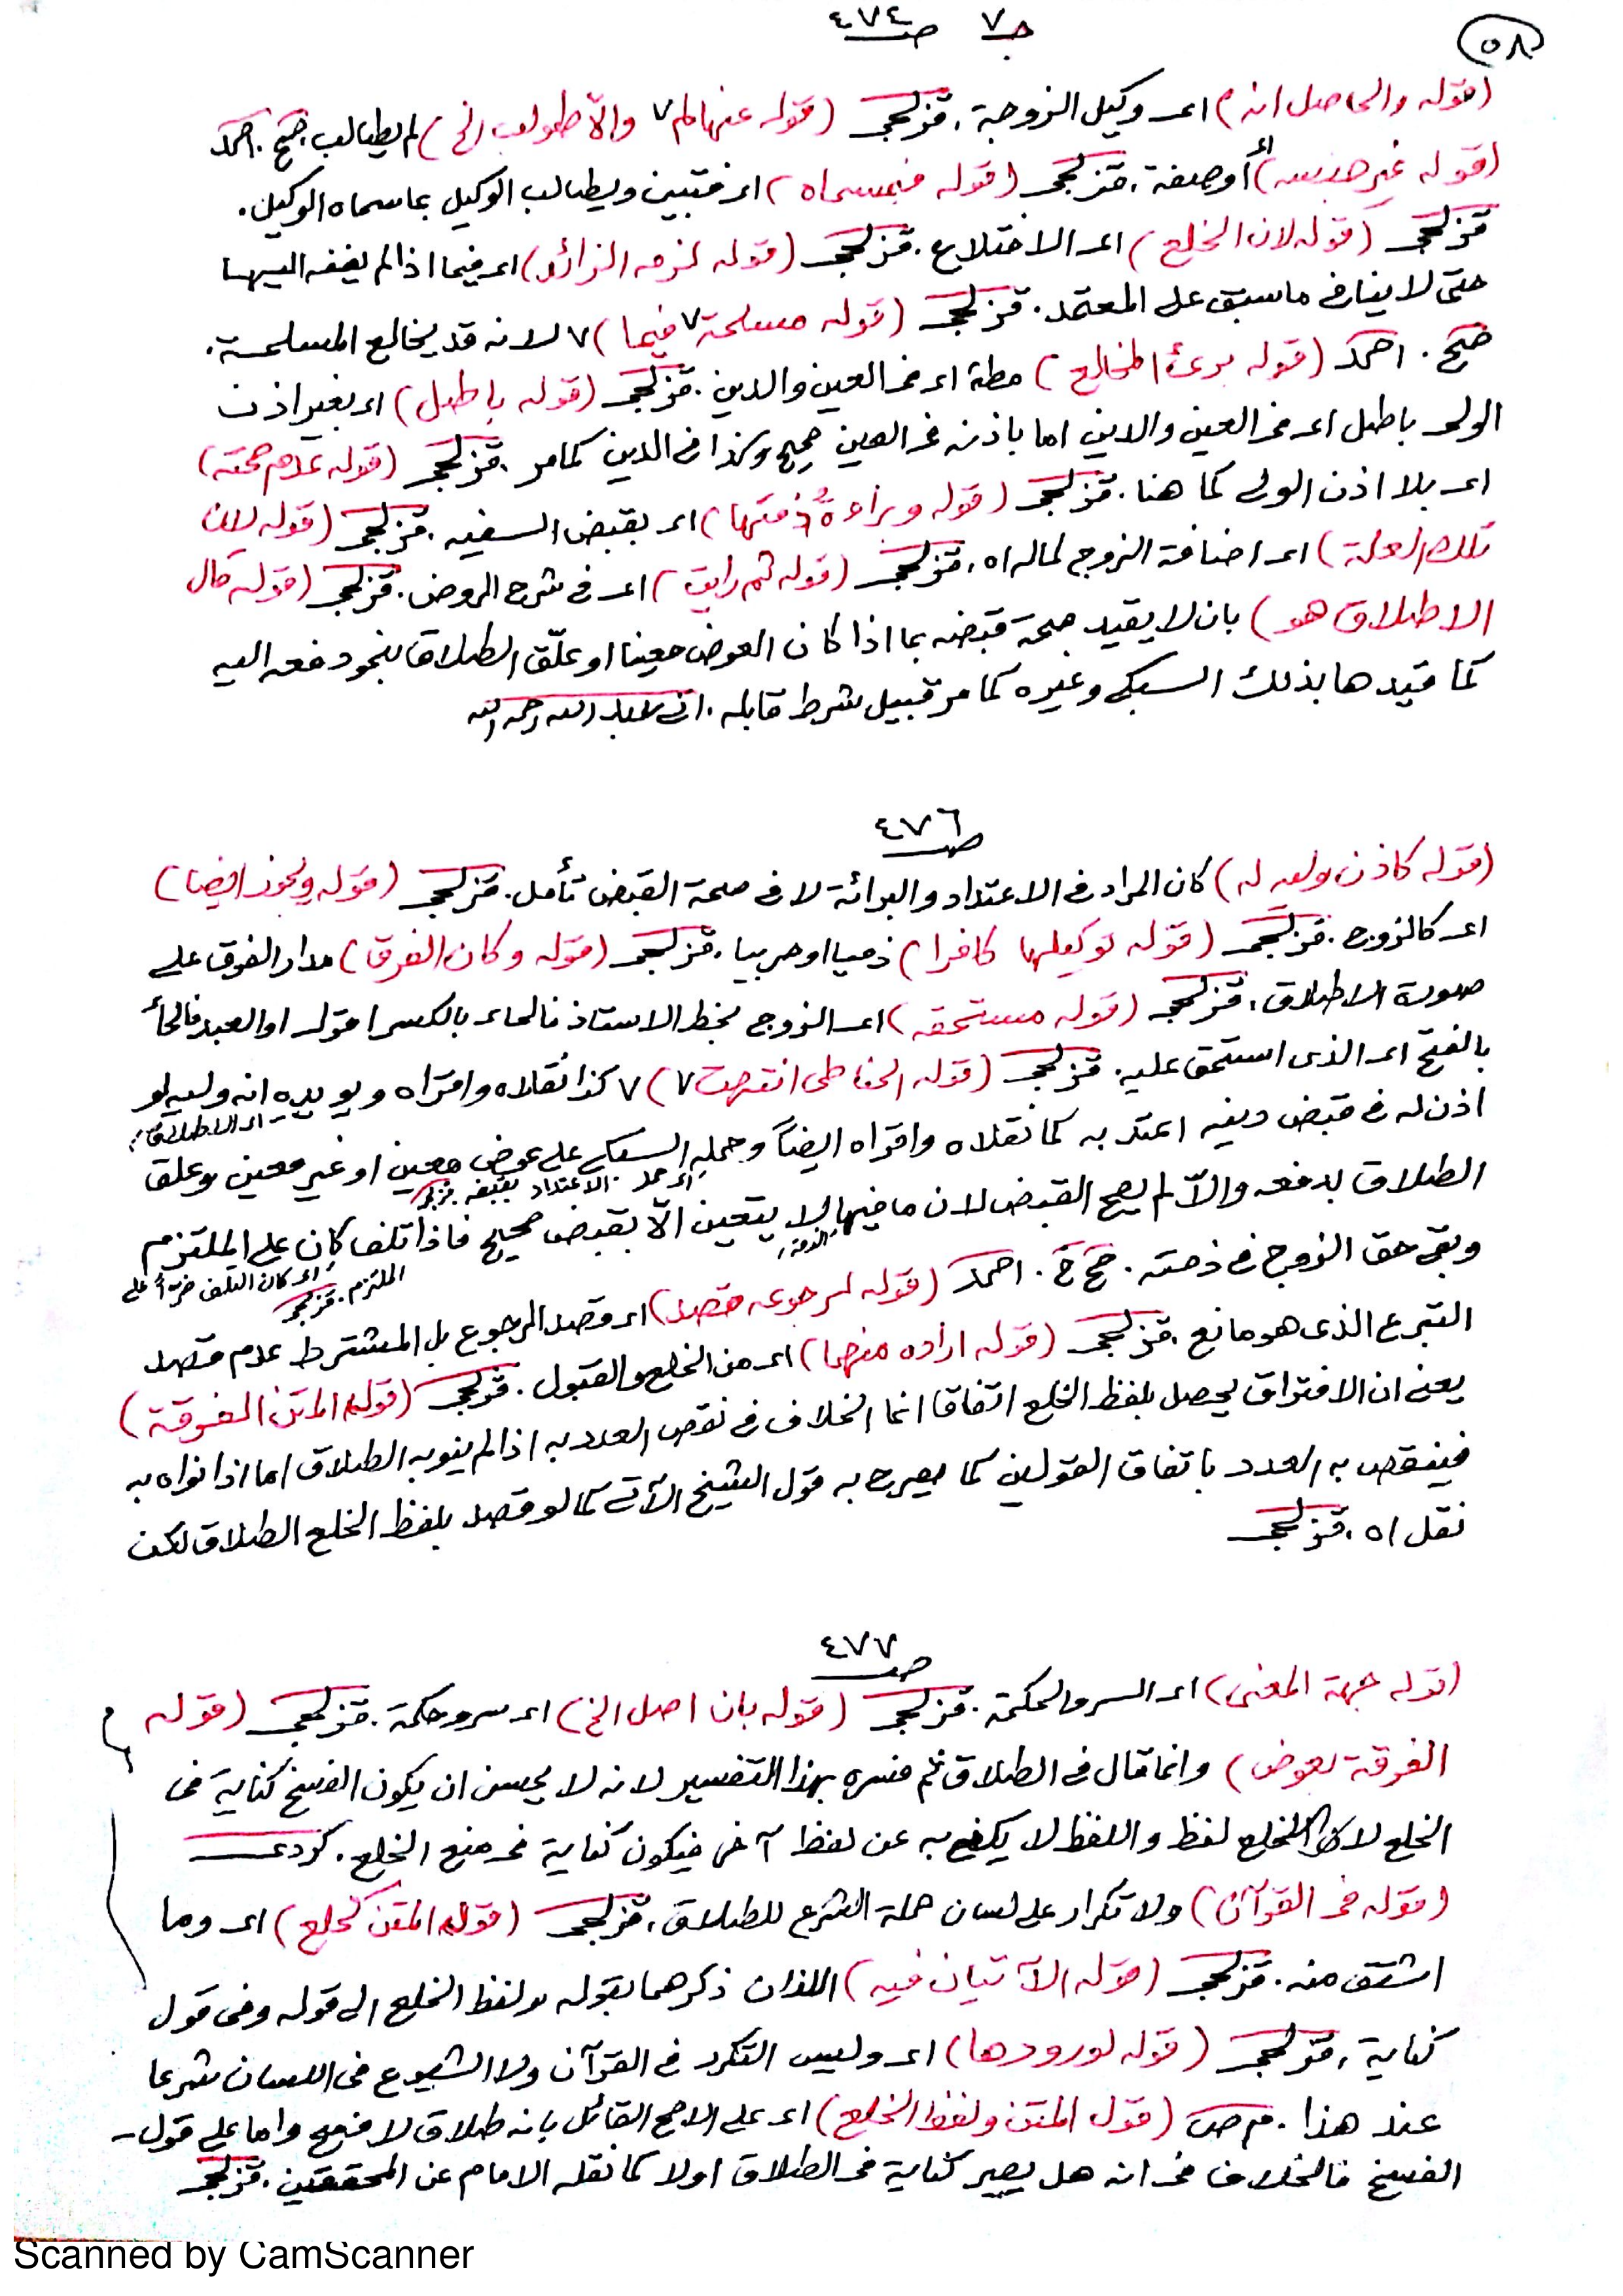 ٥٨
جـ ٧ صـ ٤٧٤
(قوله والحاصل انه) اى وكيل الزوجة. قزلجى (قوله عنهالم٧ والّا طولب الخ) لم يطالب. صح. احمد
(قوله غير جنسه) اى أو صفة. قزلجى (قوله فبمسماه) اى فتبين ويطالب الوكيل بما سماه الوكيل.
قزلجى (قوله لان الخلع) اى الاختلاع. قزلجى (قوله لزمه الزائد) اى فيما اذا لم يضفه اليها
حتى لا ينافى ما سبق على المعتمد. قزلجى (قوله مسلمة٧ فيما) ٧ لانه قد يخالع المسلمة.
صح. احمد (قوله برئ المخالع) اى فى العين والدين. قزلجى (قوله باطل) اى بغير اذن
الولى باطل اى فى العين والدين اما باذنه فى العين صحيح وكذا فى الدين كما مر. قزلجى (قوله عدم صحته)
اى بلا اذن الولى كما هنا. قزلجى (قوله وبراءةُ ذمتها) اى بقبض السفيه. قزلجى (قوله لان
تلك العلة) اى اضافة الزوج لماله اه. قزلجى (قوله ثم رايت) اى فى شرح الروض. قزلجى (قوله مال
الاطلاق هو) بان لا يقيد صحة قبضه بما اذا كان العوض معينا او علّق الطلاق بنحو دفعه اليه
كما قيدها بذلك السبكى وغيره كما مر قبيل شرط قابله. رحمه الله
صـ ٤٧٦
(قوله كاذن وليه له) كان المراد فى الاعتداد والبرائة لا فى صحة القبض تأمل. قزلجى (قوله ويجوز ايضا)
اى كالزوج. قزلجى (قوله توكيلها كافرا) ذميا او حربيا. قزلجى (قوله وكان الفرق) مدار الفرق على
صورة الاطلاق. قزلجى (قوله مستحقه) اى الزوج بخط الاستاذ فالحاء بالكسر اقول او العبد فالحأ
بالفتح اى الذى استحق عليه. قزلجى (قوله الحناطى انتهت٧) ٧ كذا نقلاه واقراه ويويده انه وليه لو
اى الاطلاق
اذن له فى قبض دينه اعتد به كما نقلاه واقراه ايضاً وحمله السبكى على عوض معين او غير معين وعلق
اى حمل الاعتداد بقبضه. قزلجى
الطلاق بدفعه والّا لم يصح القبض لان ما فيها لا يتعين الّا بقبض صحيح فاذا تلف كان على الملتزم
الذمة
اى كان التلف ضررًا على الملتزم. قزلجى
وبقى حق الزوج فى ذمته. احمد (قوله لرجوعه قصد) اى قصد الرجوع بل المشترط عدم قصد
التبرع الذى هو مانع. قزلجى (قوله اراده منهما) اى من الخلع والقبول. قزلجى (قوله المتن الفرقة)
يعنى ان الافتراق يحصل بلفظ الخلع اتفاقا انما الخلاف فى نقص العدد به اذا لم ينو به الطلاق اما اذا نواه به
فينقص به العدد باتفاق القولين كما يصرح به قول الشيخ الآتى كما لو قصد بلفظ الخلع الطلاق لكن
نقل اه. قزلجى
صـ ٤٧٧
(قوله جهة المعنى) اى السر والحكمة. قزلجى (قوله بان اصل الخ) اى سر وحكمة. قزلجى (قوله
الفرقة بعوض) وانما قال فى الطلاق ثم فسره بهذا التفسير لانه لا يحسن ان يكون الفسخ كناية فى
الخلع لان الخلع لفظ واللفظ لا يكنى به عن لفظ آخر فيكون كناية فى الخلع. كردى
(قوله فى القرآن) ولا تكرار على لسان حملة الشرع للطلاق. قزلجى (قوله المتن كخلع) اى وما
اشتق منه. قزلجى (قوله الآتيان فيه) اللذان ذكرهما بقوله ولفظ الخلع الى قوله وفى قول
كناية. قزلجى (قوله لورودها) اى وليس التكرر فى القرآن ولا الشيوع فى اللسان شرعا
عند هذا. م ص (قول المتن ولفظ الخلع) اى على الاصح القائل بانه طلاق لا فسخ واما على قول
الفسخ فالخلاف فى انه هل يصير كناية فى الطلاق او لا كما نقله الامام عن المحققين. قزلجى
Scanned by CamScanner